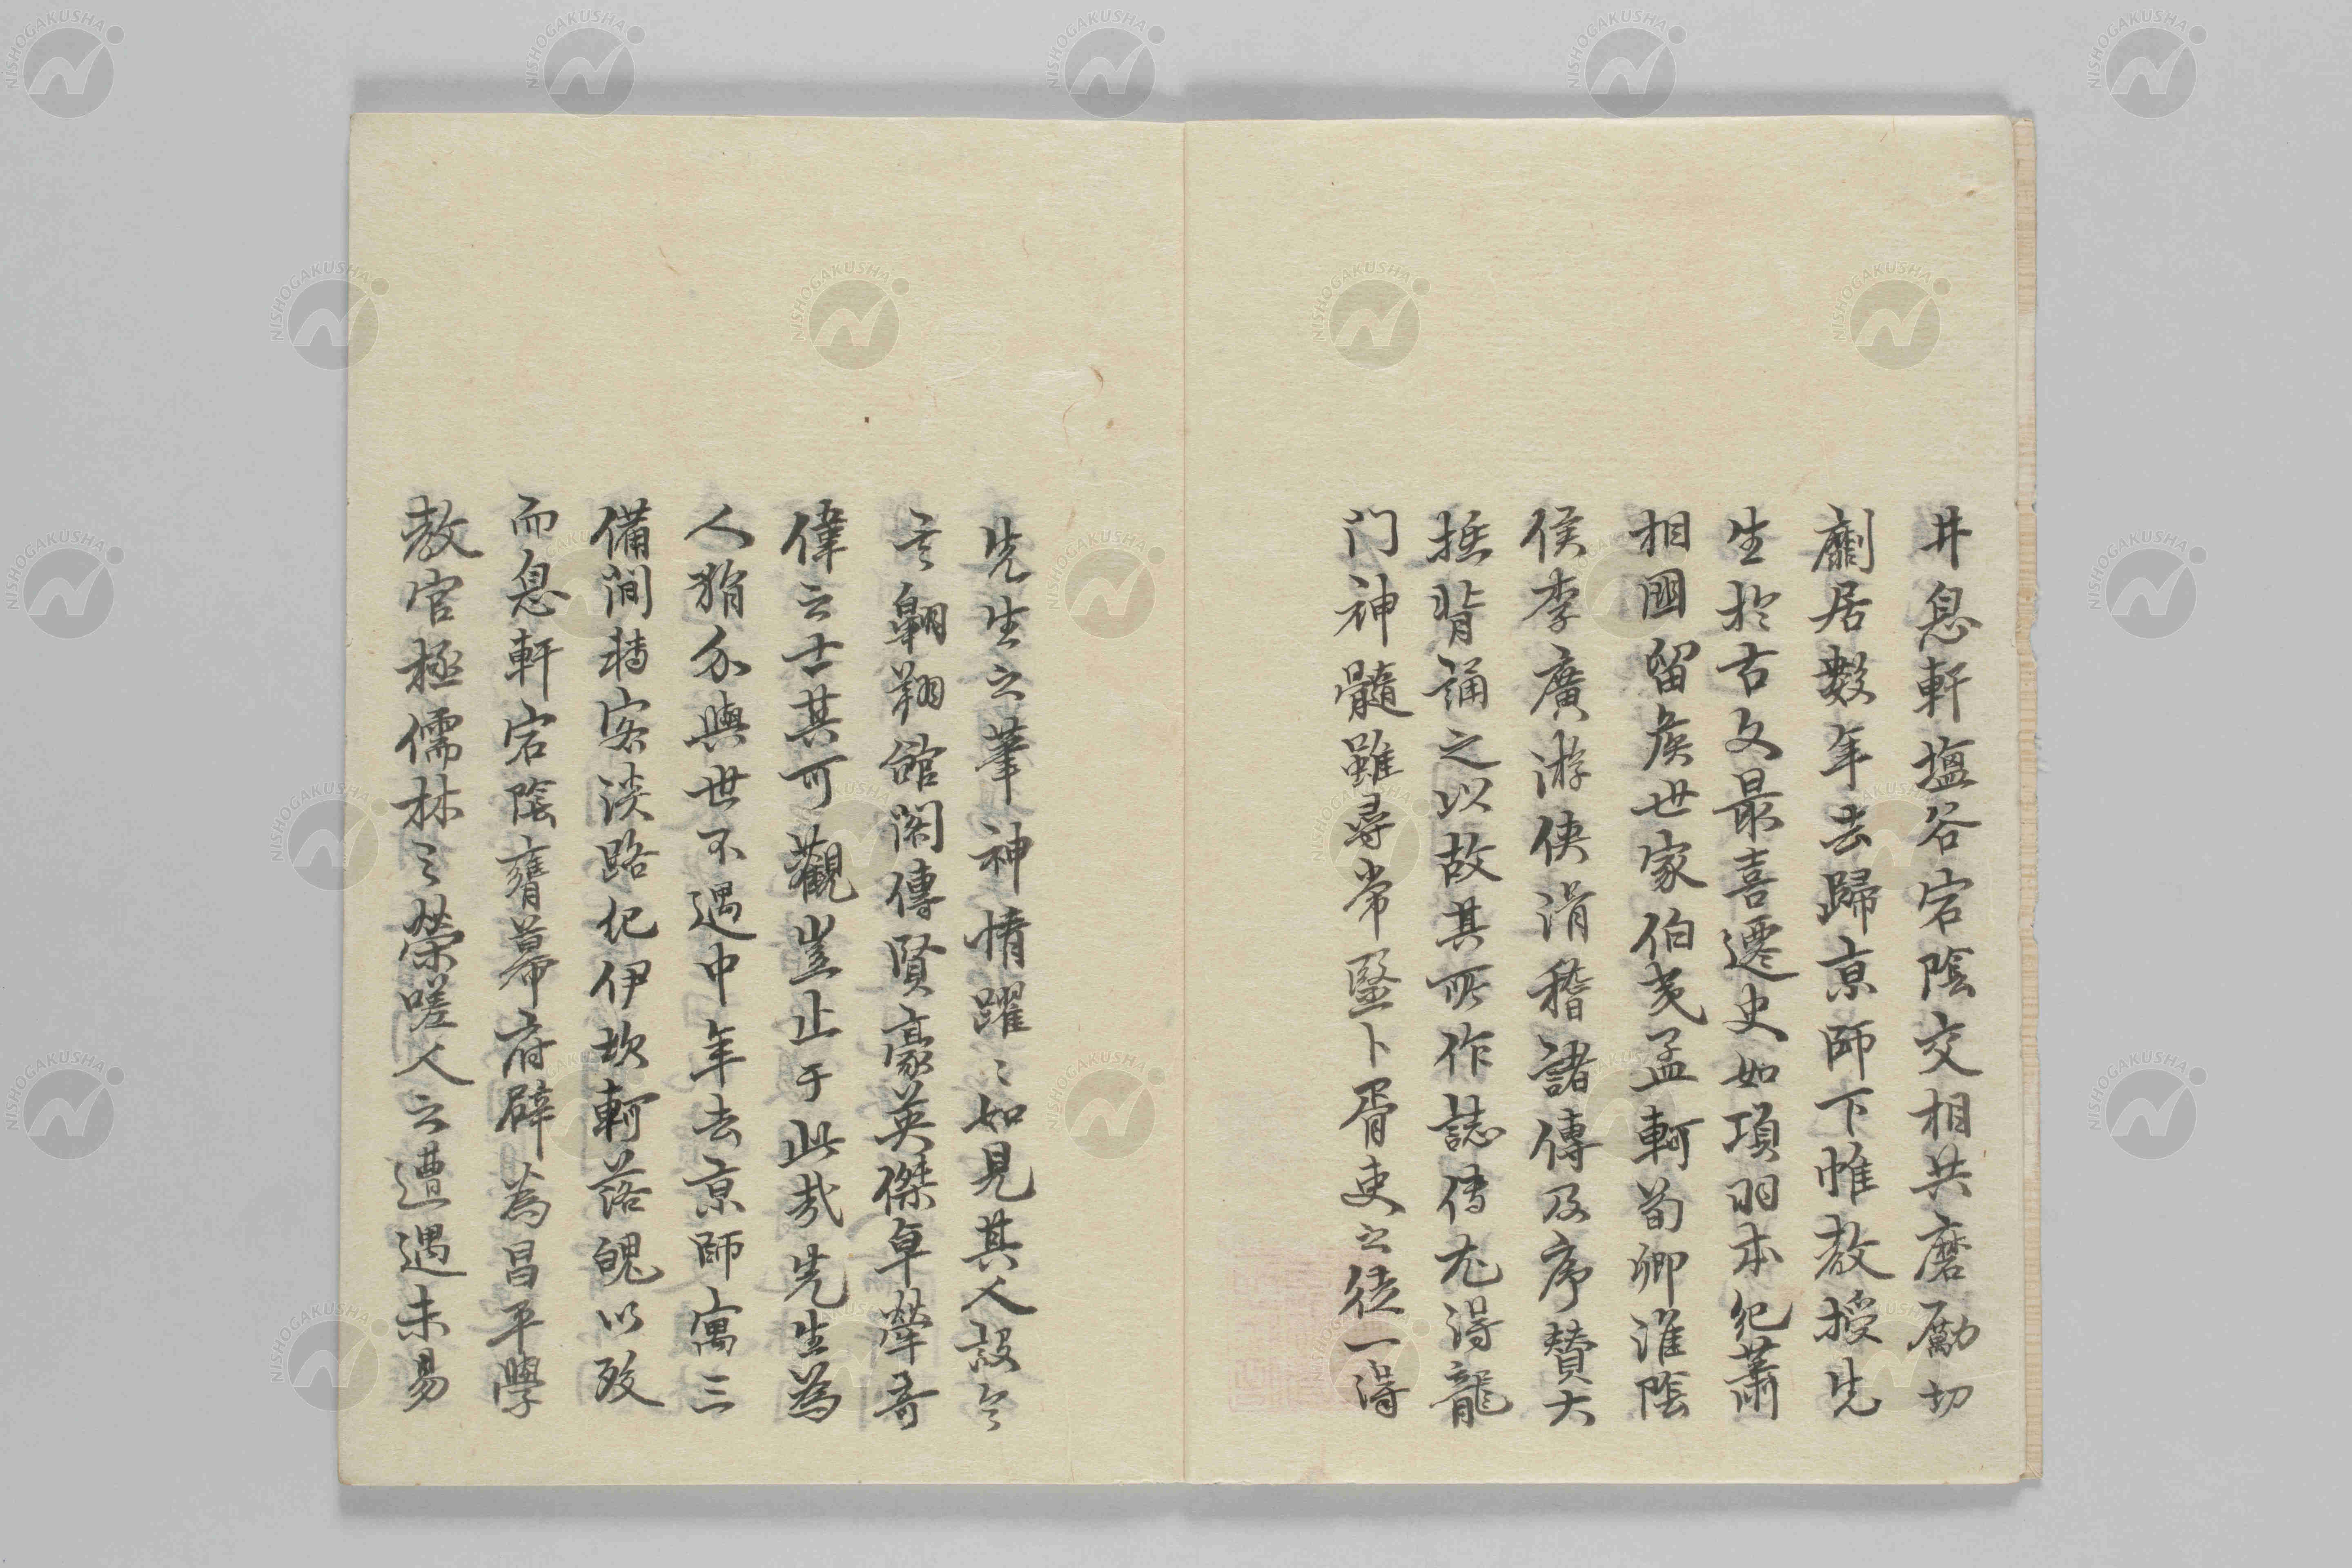 井息軒塩谷宕陰交相共磨勵切
劘居數年去歸京師下帷教授先
生於古文最喜遷史如項羽本紀蕭
相國留侯世家伯夷孟軻荀卿淮陰
侯李廣游俠滑稽諸傳及序贊大
抵背誦之以故其所作誌傳尤得龍
门神髓雖尋常醫卜胥吏之徒一得
先生之筆神情躍〻如見其人設令
翺翔館閣傳賢豪英傑卓犖奇
偉之士其可觀豈止于此哉先生為
人狷介與世不遇中年去京師寓三
備間轉客淡路紀伊坎軻落魄以歿
而息軒宕陰膺幕府辟為昌平學
教官極儒林之榮嗟人之遭遇未易
NISHOGAKUSHA